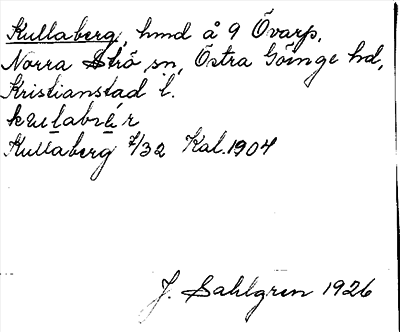 Kullaberg, hmd å 9 Övarp,
Norra Strö sn, Östra Göinge hd,
Kristianstad l.
Kullaberg 7/32 Kal. 1904
J. Sahlgren 1926